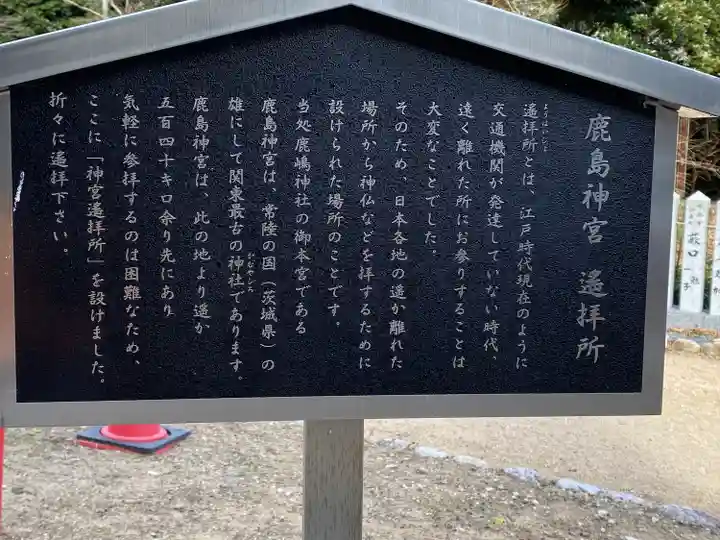 鹿島神宮 遙拝所
ようはいじょ
遙拝所とは、江戸時代現在のように
交通機関が発達していない時代、
遠く離れた所にお参りすることは
大変なことでした。
そのため、日本各地の遙か離れた
場所から神仏などを拝するために
設けられた場所のことです。
当処鹿嶋神社の御本宮である
鹿島神宮は、常陸の国(茨城県)の
雄にして関東最古の神社であります。
かむやしろ
鹿島神宮は、此の地より遙か
五百四十キロ余り先にあり
気軽に参拝するのは困難なため、
ここに「神宮遙拝所」を設けました。
折々に遙拝下さい。